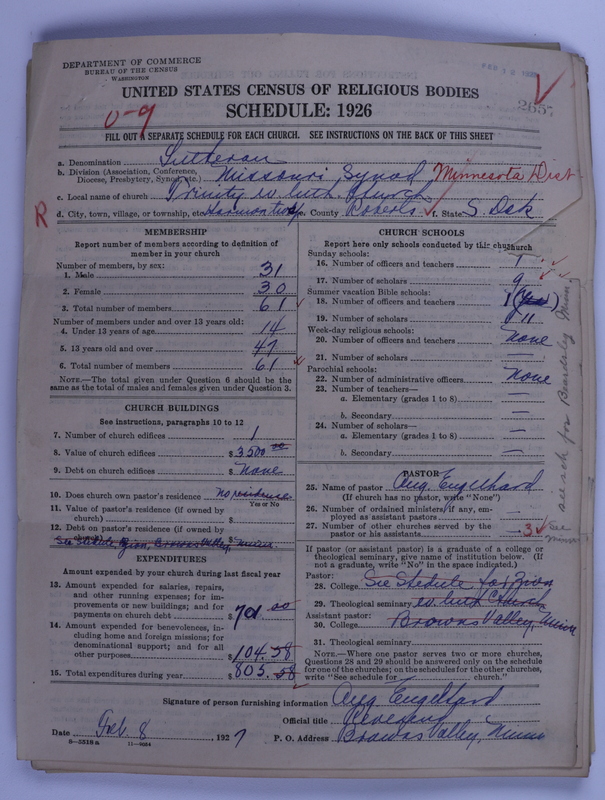 DEPARTMENT OF COMMERCE
BUREAU OF THE CENSUS
WASHINGTON
UNITED STATES CENSUS OF RELIGIOUS BODIES
SCHEDULE: 1926
0-9
2657
FILL OUT A SEPARATE SCHEDULE FOR EACH CHURCH. SEE INSTRUCTIONS ON THE BACK OF THIS SHEET
a. Denomination Lutheran
b. Division (Association, Conference, Diocese, Presbytery, Synod, etc.) Missouri Synod Minnesota Dist
c. Local name of church Trinity ev. luth. Church
R
d. City, town, village, or township, etc. e. County Roberts f. State S. Dak
MEMBERSHIP
Report number of members according to definition of member in your church
Number of members, by sex:
1. Male 31
2. Female 30
3. Total number of members 61
Number of members under and over 13 years old:
4. Under 13 years of age 14
5. 13 years old and over 47
6. Total number of members 61
NOTE.—The total given under Question 6 should be the same as the total of males and females given under Question 3.
CHURCH BUILDINGS
See instructions, paragraphs 10 to 12
7. Number of church edifices 1
8. Value of church edifices $ 3500 00
9. Debt on church edifices $ None
10. Does church own pastor's residence No residence
Yes or No
11. Value of pastor's residence (if owned by church) $
12. Debt on pastor's residence (if owned by church) $
See Schedule Zion, Browns Valley, Minn.
EXPENDITURES
Amount expended by your church during last fiscal year
13. Amount expended for salaries, repairs, and other running expenses; for improvements or new buildings; and for payments on church debt $ 701.00
14. Amount expended for benevolences, including home and foreign missions; for denominational support; and for all other purposes $ 104.58
15. Total expenditures during year $ 805.58
CHURCH SCHOOLS
Report here only schools conducted by this church
Church
Sunday schools:
16. Number of officers and teachers 1
17. Number of scholars 9
Summer vacation Bible schools:
18. Number of officers and teachers 1
19. Number of scholars 11
Week-day religious schools:
20. Number of officers and teachers None
21. Number of scholars —
Parochial schools:
22. Number of administrative officers None
23. Number of teachers—
a. Elementary (grades 1 to 8) —
b. Secondary —
24. Number of scholars—
a. Elementary (grades 1 to 8) —
b. Secondary —
PASTOR
25. Name of pastor Aug. Engelhard
(If church has no pastor, write "None")
26. Number of ordained ministers if any, employed as assistant pastors —
27. Number of other churches served by the pastor or his assistants 3 See Minn
If pastor (or assistant pastor) is a graduate of a college or theological seminary, give name of institution below. (If not a graduate, write "No" in the space indicated.)
Pastor:
28. College See Shedule for Zion
29. Theological seminary ev. luth Church
Assistant pastor:
30. College Browns Valley, Minn
31. Theological seminary
NOTE.—Where one pastor serves two or more churches, Questions 28 and 29 should be answered only on the schedule for one of the churches; on the schedules for the other churches, write "See schedule for church."
Signature of person furnishing information Aug. Engelhard
Official title Reverend
Date Feb. 8, 1927 P. O. Address Browns Valley, Minn
8—5518a 11—9054